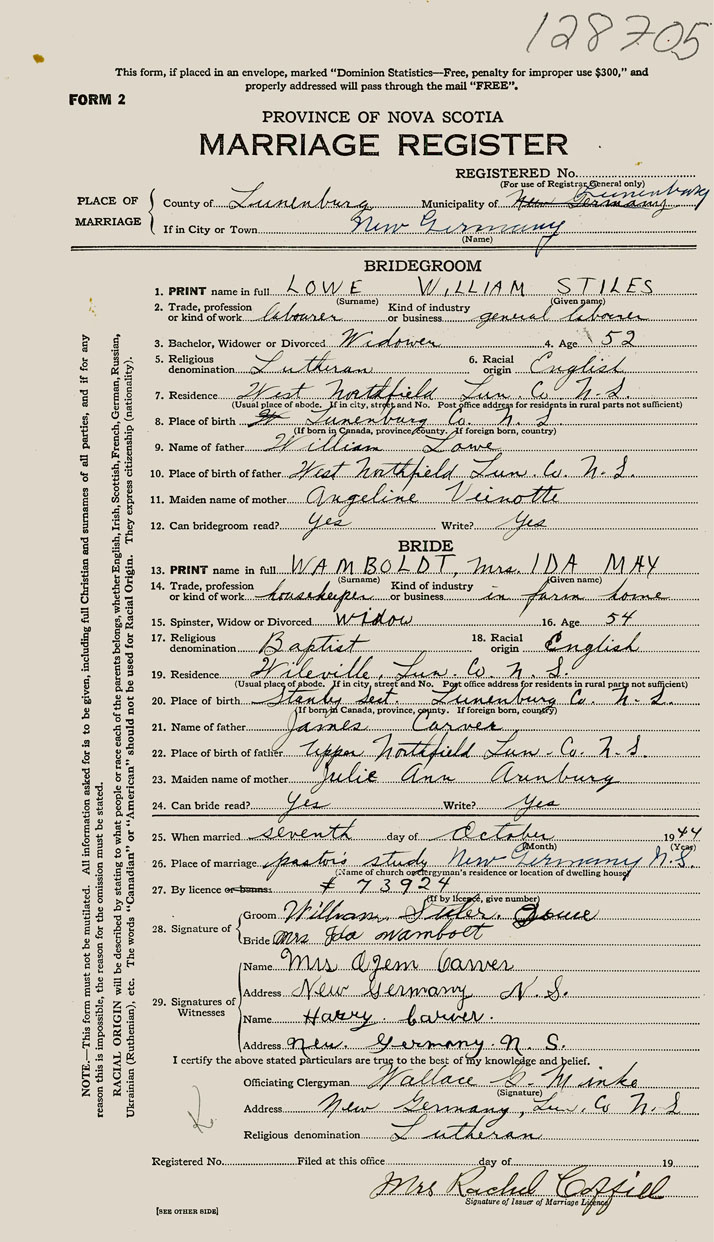 128705
This form, if placed in an envelope, marked "Dominion Statistics—Free, penalty for improper use $300," and
properly addressed will pass through the mail "FREE".
FORM 2
PROVINCE OF NOVA SCOTIA
MARRIAGE REGISTER
REGISTERED No.
(For use of Registrar General only)
PLACE OF MARRIAGE
County of Lunenburg Municipality of New Germany Lunenburg
If in City or Town New Germany
(Name)
BRIDEGROOM
1. PRINT name in full LOWE WILLIAM STILES
(Surname) (Given name)
2. Trade, profession or kind of work labourer Kind of industry or business general labourer
3. Bachelor, Widower or Divorced Widower 4. Age 52
5. Religious denomination Lutheran 6. Racial origin English
7. Residence West Northfield Lun. Co. N.S.
(Usual place of abode. If in city, street and No. Post office address for residents in rural parts not sufficient)
8. Place of birth Lunenburg Co. N.S.
(If born in Canada, province, county. If foreign born, country)
9. Name of father William Lowe
10. Place of birth of father West Northfield Lun. Co. N.S.
11. Maiden name of mother Angeline Veinotte
12. Can bridegroom read? Yes Write? Yes
BRIDE
13. PRINT name in full WAMBOLDT, Mrs. IDA MAY
(Surname) (Given name)
14. Trade, profession or kind of work housekeeper Kind of industry or business in farm home
15. Spinster, Widow or Divorced Widow 16. Age 54
17. Religious denomination Baptist 18. Racial origin English
19. Residence Wileville, Lun. Co. N.S.
(Usual place of abode. If in city, street and No. Post office address for residents in rural parts not sufficient)
20. Place of birth Stanly Sect. Lunenburg Co. N.S.
(If born in Canada, province, county. If foreign born, country)
21. Name of father James Carver
22. Place of birth of father Upper Northfield Lun. Co. N.S.
23. Maiden name of mother Julie Ann Arenburg
24. Can bride read? Yes Write? Yes
25. When married seventh day of October 1944
(Month) (Year)
26. Place of marriage pastor's study New Germany N.S.
(Name of church or clergyman's residence or location of dwelling house)
27. By licence or banns: # 73924
(If by licence, give number)
28. Signature of
Groom William Lowe
Bride Mrs Ida Wambolt
29. Signatures of Witnesses
Name Mrs Ozem Carver
Address New Germany N.S.
Name Harry Carver.
Address New Germany N.S.
I certify the above stated particulars are true to the best of my knowledge and belief.
Officiating Clergyman Wallace G. Minke
(Signature)
Address New Germany, Lun. Co N.S
Religious denomination Lutheran
Registered No. Filed at this office day of 19
Mrs Rachel Coffill
Signature of Issuer of Marriage Licence
[SEE OTHER SIDE]
NOTE.—This form must not be mutilated. All information asked for is to be given, including full Christian and surnames of all parties, and if for any
reason this is impossible, the reason for the omission must be stated.
RACIAL ORIGIN will be described by stating to what people or race each of the parents belongs, whether English, Irish, Scottish, French, German, Russian,
Ukrainian (Ruthenian), etc. The words "Canadian" or "American" should not be used for Racial Origin. They express citizenship (nationality).